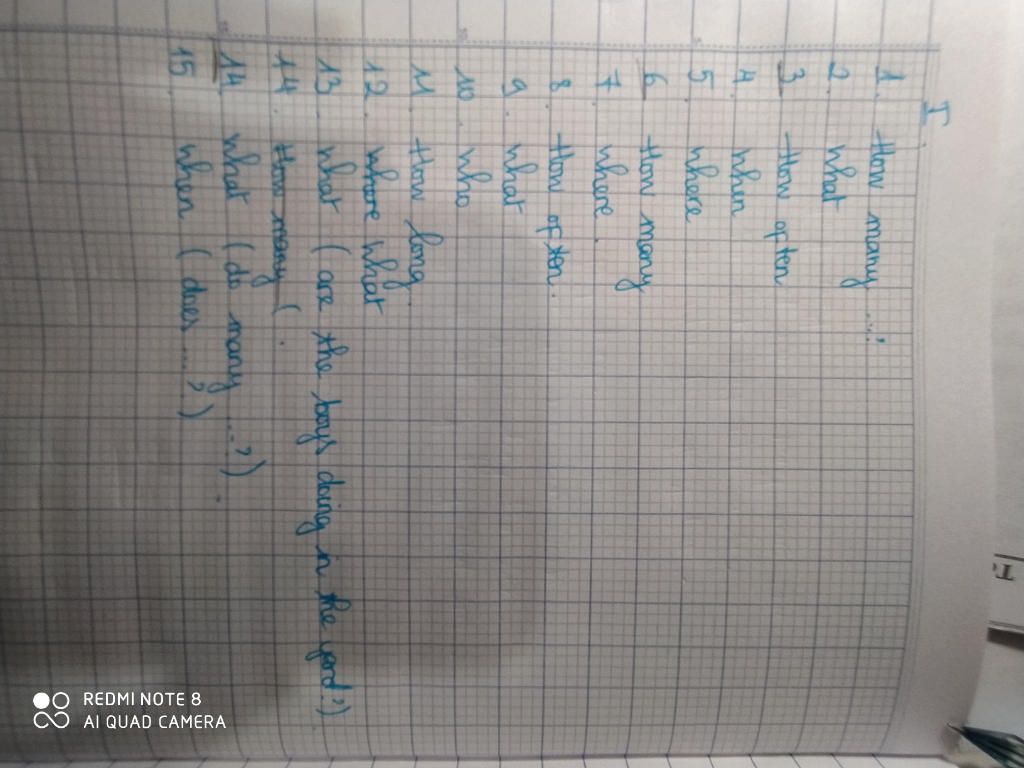 I.
1. How many ...?
2. What
3 How often
4. When
5. Where
6 How many
7 Where.
8. How often.
9. What
10. Who
11. How long.
12. Where What
13. What ( are the boys doing in the yard?)
14. How many (
14 What ( do many ...?).
15. When ( does ...?)
REDMI NOTE 8
AI QUAD CAMERA